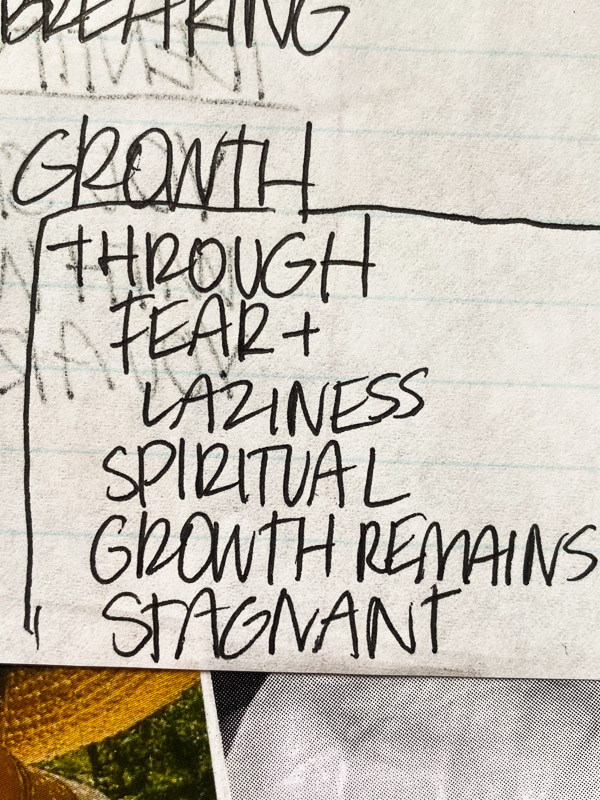 BREAKING
GROWTH
THROUGH
FEAR +
LAZINESS
SPIRITUAL
GROWTH REMAINS
STAGNANT